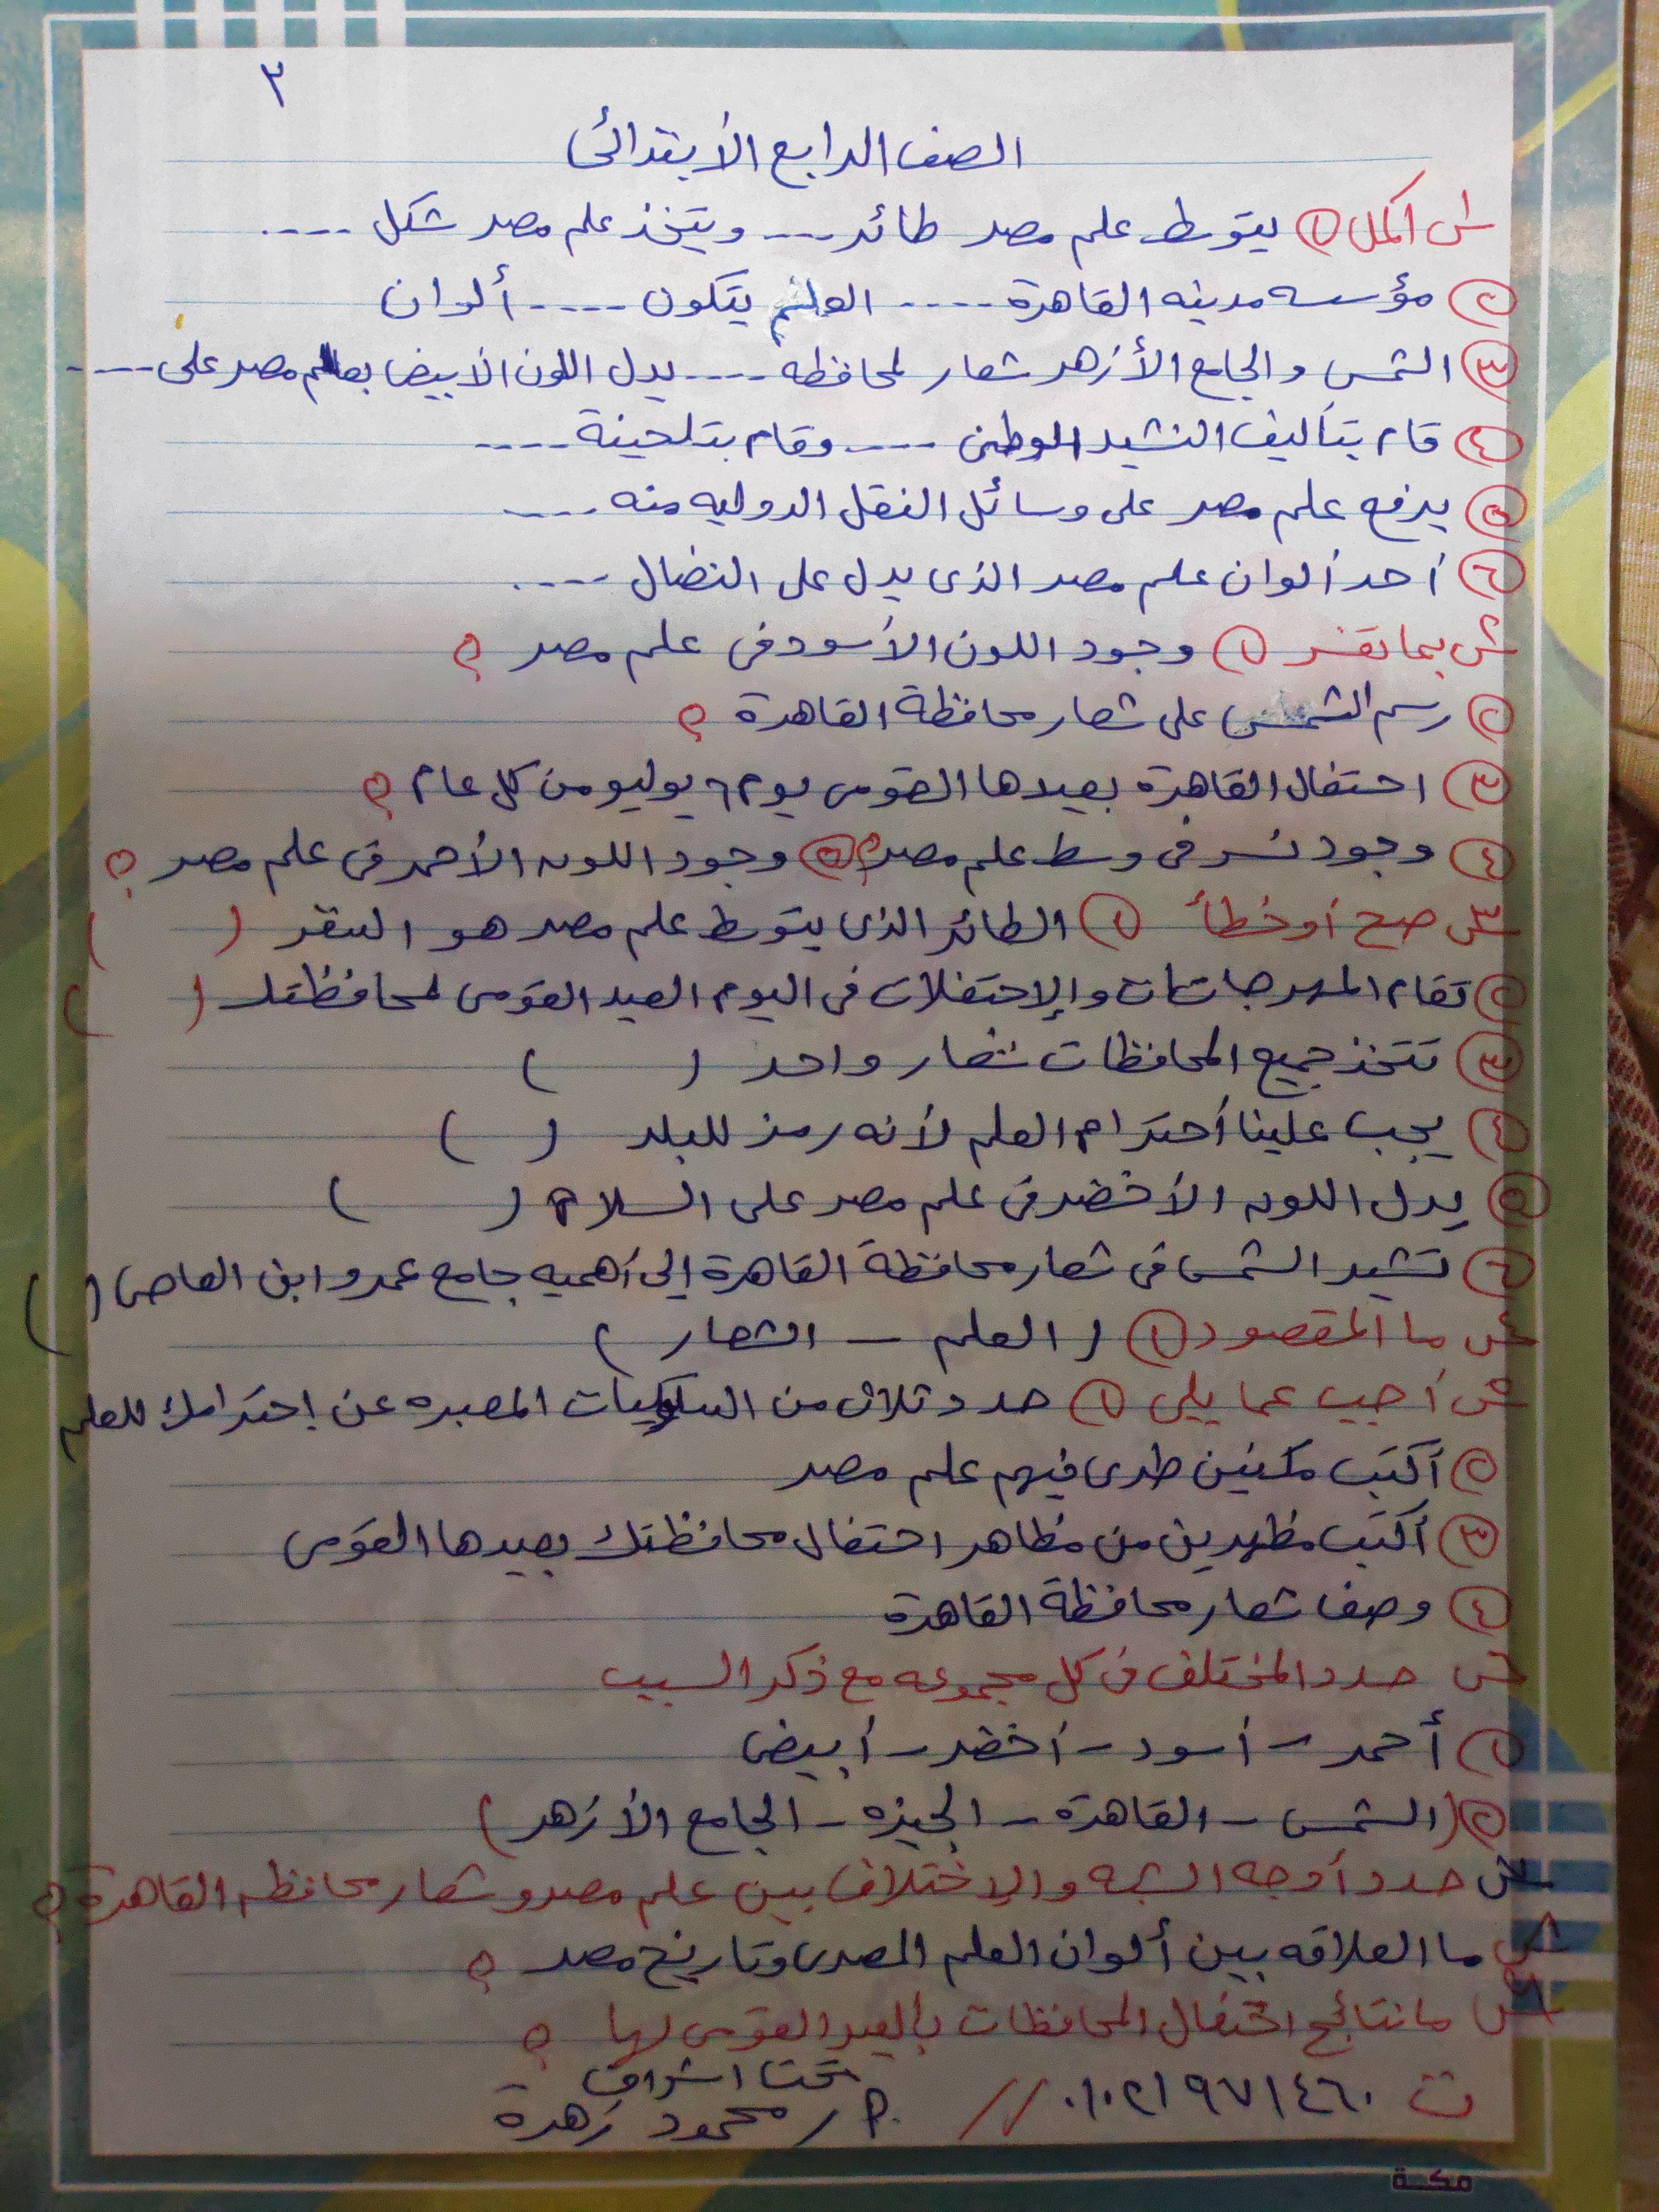 ٢
الصف الرابع الأبتدائى
س١ أكمل ① يتوسط علم مصر طائر ---- ويتخذ علم مصر شكل ----
② مؤسسه مدينه القاهرة ---- العلم يتكون ---- ألوان
③ الشمس والجامع الأزهر شعار لمحافظه ---- يدل اللون الأبيض بعلم مصر على ----
④ قام بتأليف النشيد الوطنى ---- وقام بتلحينة ----
⑤ يرفع علم مصر على وسائل النقل الدوليه منه ----
⑥ أحد ألوان علم مصر الذى يدل على النضال ----
س٢ بما تفسر ① وجود اللون الأسود فى علم مصر ؟
② رسم الشمس على شعار محافظة القاهرة ؟
③ احتفال القاهرة بعيدها القومى يوم ٦ يوليو من كل عام ؟
④ وجود نسر فى وسط علم مصر ؟ ⑤ وجود اللون الأحمر فى علم مصر ؟
س٣ صح أو خطأ ① الطائر الذى يتوسط علم مصر هو السقر ( )
② تقام المهرجاتات والإحتفلات فى اليوم العيد القومى لمحافظتك ( )
③ تتخذ جميع المحافظات شعار واحد ( )
④ يجب علينا أحترام العلم لأنه رمز للبلد ( )
⑤ يدل اللون الأخضر فى علم مصر على السلام ( )
⑥ تشير الشمس فى شعار محافظة القاهرة إلى أهميه جامع عمرو ابن العاص ( )
س٤ ما المقصود ① ( العلم – الشعار )
س٥ أجيب عما يلى ① حدد ثلاث من السلوكيات المعبره عن إحترامك للعلم
② أكتب مكنين طرى فيهم علم مصر
③ أكتب مظهرين من مظاهر احتفال محافظتك بعيدها القومى
④ وصف شعار محافظة القاهرة
س٦ حدد المختلف فى كل مجموعه مع ذكر السبب
① أحمر – أسود – أخضر – أبيض
② (الشمس – القاهرة – الجيزه – الجامع الأزهر)
س٧ حدد أوجه الشبه والإختلاف بين علم مصر وشعار محافظه القاهرة ؟
س٨ ما العلاقه بين ألوان العلم المصرى وتاريخ مصر ؟
س٩ ما نتائج احتفال المحافظات بالعيد القومى لها ؟
تحت اشراف
ت ٠١٠٢١٩٧١٤٦٠ // م. / محمود زهرة
مكة